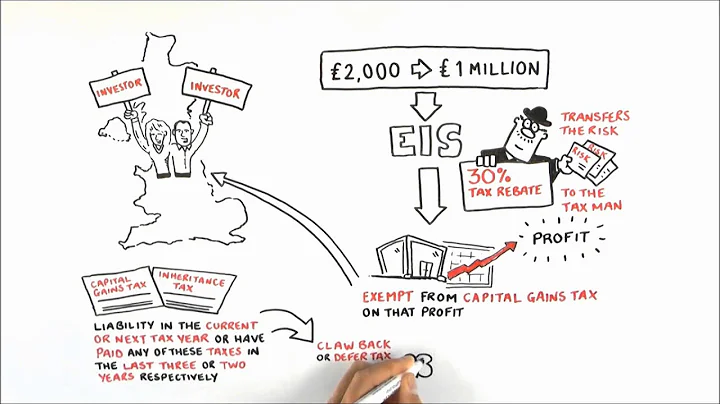 INVESTOR
INVESTOR
£2,000 ⇨ £1 MILLION
EIS
30%
TAX REBATE
TRANSFERS
THE RISK
RISK
RISK
TO THE
TAX MAN
PROFIT
EXEMPT FROM CAPITAL GAINS TAX
ON THAT PROFIT
CAPITAL
GAINS TAX
INHERITANCE
TAX
LIABILITY IN THE CURRENT
OR NEXT TAX YEAR OR HAVE
PAID ANY OF THESE TAXES IN
THE LAST THREE OR TWO
YEARS RESPECTIVELY
CLAW BACK
OR DEFER TAX